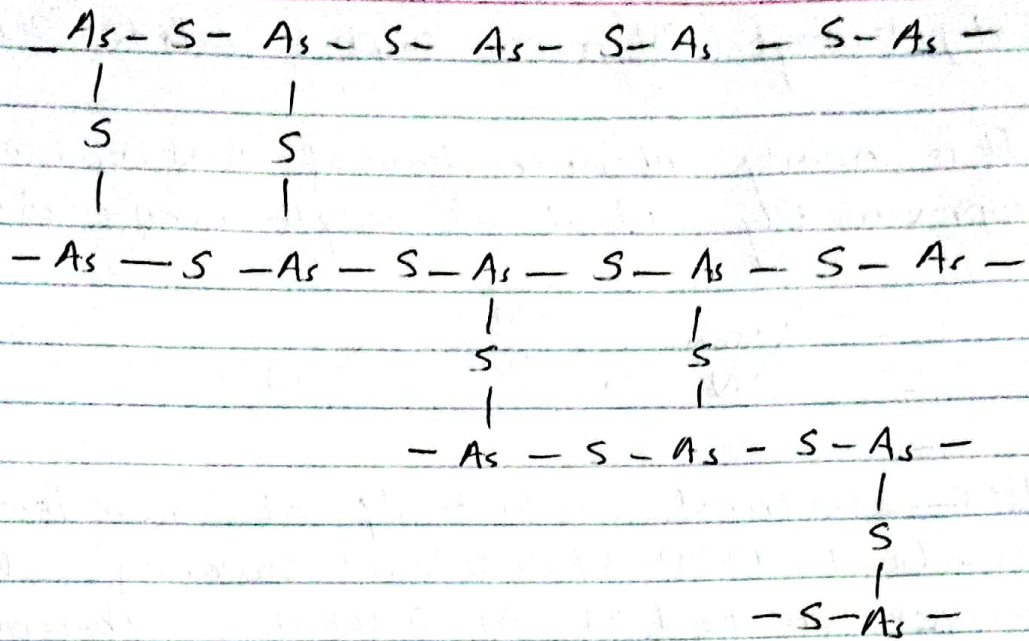 – As – S – As – S – As – S – As – S – As –
| |
S S
| |
– As – S – As – S – As – S – As – S – As –
| |
S S
| |
– As – S – As – S – As –
|
S
|
– S – As –